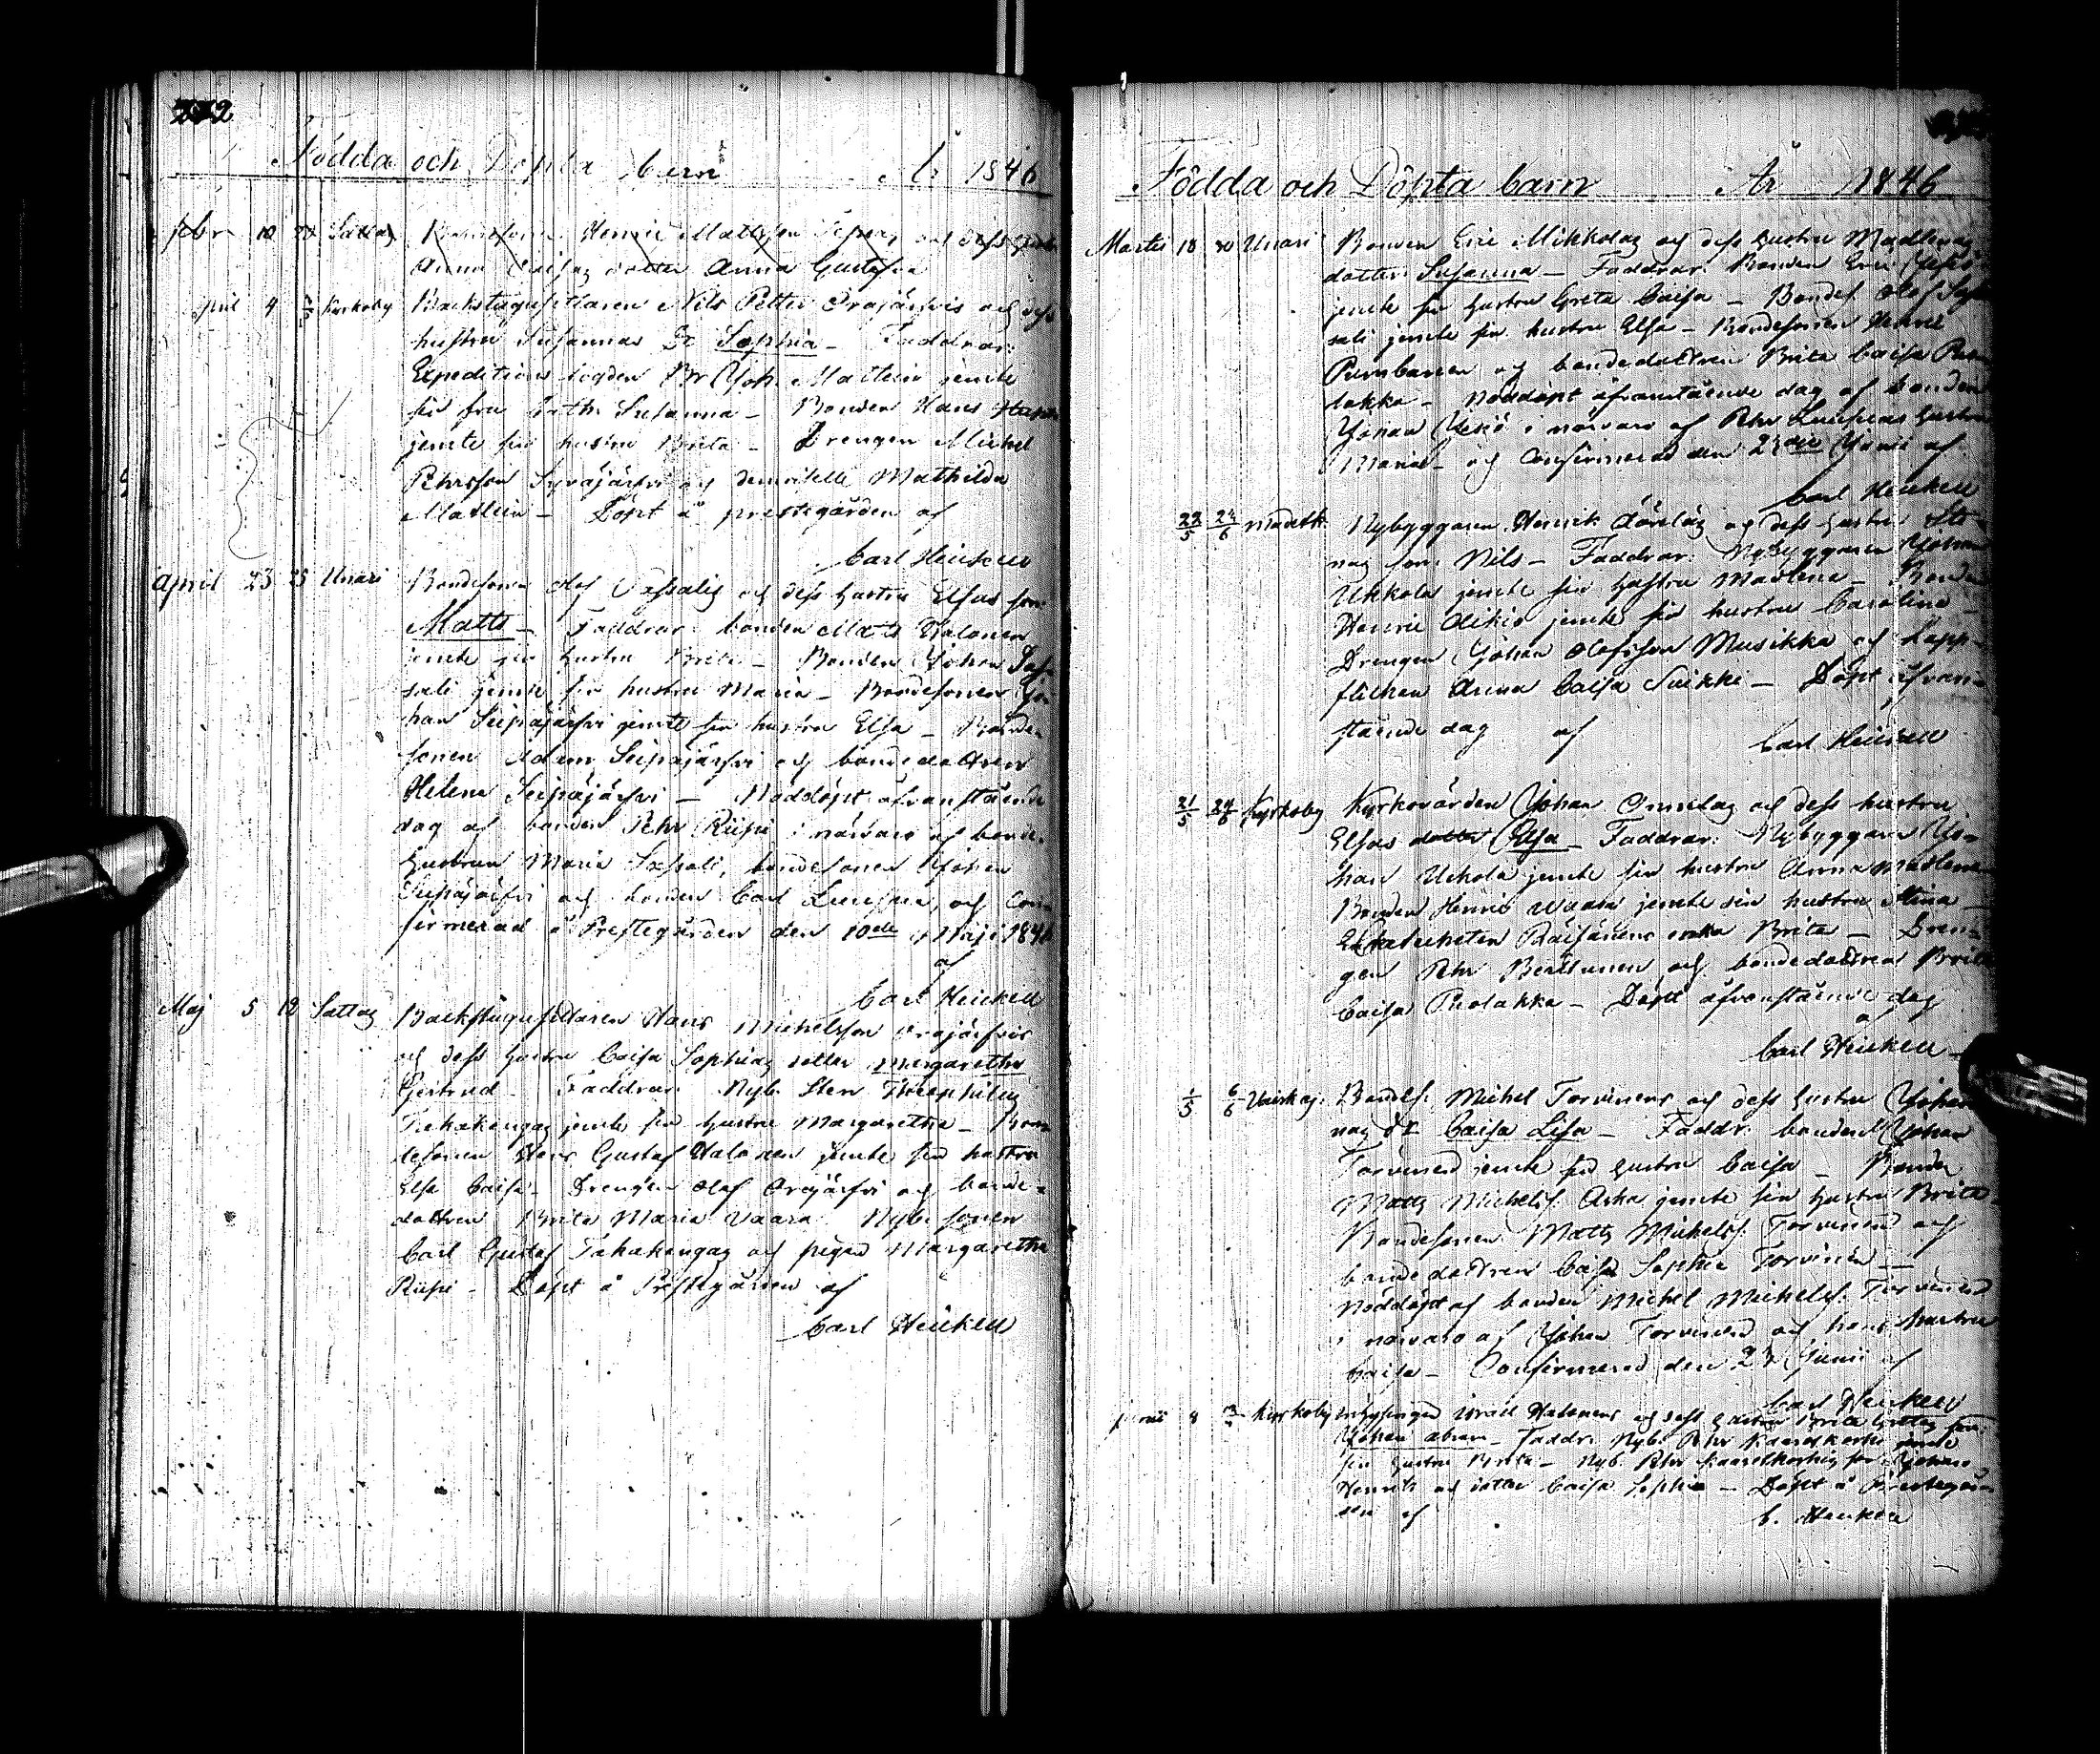 Födda och Döpta barn År 1846
febr 10 Sattaj Bondesonen Henric Mattsson och dess
Anna Caisas dotter Anna Gustafva
pril 4 Kyrkoby Backstugusittaren Nils Petter Orajärfvis och dess
hustru Susannas Dr Sophia - Faddrar:
Expeditions fogden Br Joh. Mattein jemte
sin fru Cath. Susanna - Bonden Hans
jemte sin hustru Brita - Drengen Michel
Pehrsson Syväjärfvi och demoiselle Mathilda
Mattein - Döpt å prestegården af
Carl Heickell
April 23 25 Unari Bondesonen Olof Sassalis och dess hustru Elsas son
Matts - Faddrar: bonden Matts Halonen
jemte sin hustru Brita - Bonden Johan Sas-
sali jemte sin hustru Maria - Bondesonen Jo-
han Seipäjärfvi jemte sin hustru Elsa - Bonde-
sonen Adam Seipäjärfvi och bondedottren
Helena Seipäjärfvi - Nöddöpt ofvanstående
dag af bonden Pehr Riipi i närvaro af bonde-
hustrun Maria Sassali, bondesonen Johan
Seipäjärfvi och bonden Carl och Con-
firmerad å Prestegården den 10de Maji 1846
af
Carl Heickell
Maj 5 12 Sattaj Backstugusittaren Hans Michelsson Orajärfvis
och dess hustru Caisa Sophias dotter Margaretha
Gertrud - Faddrar: Nyb. Sten Theophilus
Tahakangas jemte sin hustru Margaretha - Bon-
desonen Hans Gustaf Halonen jemte sin hustru
Elsa Caisa - Drengen Olof Orajärfvi och bonde-
dottren Brita Maria Vaara. Nyb. sonen
Carl Gustaf Tahakangas och pigan Margaretha
Riipi - Döpt å Prestegården af
Carl Heickell
Födda och Döpta barn År 1846
Martii 18 20 Unari Bonden Eric Mikkolas och dess hustru Madlenas
dotter Susanna - Faddrar: Bonden Eric
jemte sin hustru Greta Caisa - Bondes. Olof Sas-
sali jemte sin hustru Elsa - Bondesonen Henric
och bondedottren Brita Caisa
lakka - Nöddöpt ofvanstående dag af bonden
Johan i närvaro af Pehr hustru
Maria - och Confirmerad den 23die Junii af
Carl Heickell
22/5 24/6 Madetk. Nybyggaren Henrik och dess hustru
nas son: Nils - Faddrar: Nybyggaren Johan
Uhkola jemte sin hustru Madlena - Bonden
Henric Aikio jemte sin hustru Carolina -
Drengen Johan Olofsson Musikka och Lapp-
flickan Anna Caisa Suikki - Döpt ofvan-
stående dag af Carl Heickell
21/5 24/6 Kyrkoby Kyrkovärden Johan Onnelas och dess hustru
Elsas dotter Elsa - Faddrar: Nybyggaren Jo-
han Uhkola jemte sin hustru Anna Madlena
Bonden Henric Vaara jemte sin hustru Stina -
Ekatecheten Räisänens enka Brita - Dren-
gen Pehr Berttunen och bondedottren Brita
Caisa Puolakka - Döpt ofvanstående dag
af
Carl Heickell -
1/5 6/6 Bondes. Michel Torvinens och dess hustru Johan-
nas dr. Caisa Lisa - Faddr: bonden Johan
Torvinen jemte sin hustru Caisa - Bonden
Matts Michelss. Aska jemte sin hustru Brita
Bondesonen Matts Michelss. Torvinen och
bondedottren Caisa Sophia Torvinen -
Nöddöpt af bonden Michel Michelss. Torvinen
i närvaro af Johan Torvinen och hans hustru
Caisa - Confirmerad den 23 Junii af
Carl Heickell
Junii 8 Kyrkoby Inhysingen Israel Halonens och dess hustru Brita Gretas son
Johan Abram - Faddr: Nyb. Pehr jemte
sin hustru Brita - Nyb. Pehr son Johan
Henrik och dotter Caisa Sophia - Döpt å Prestegår-
den af C. Heickell